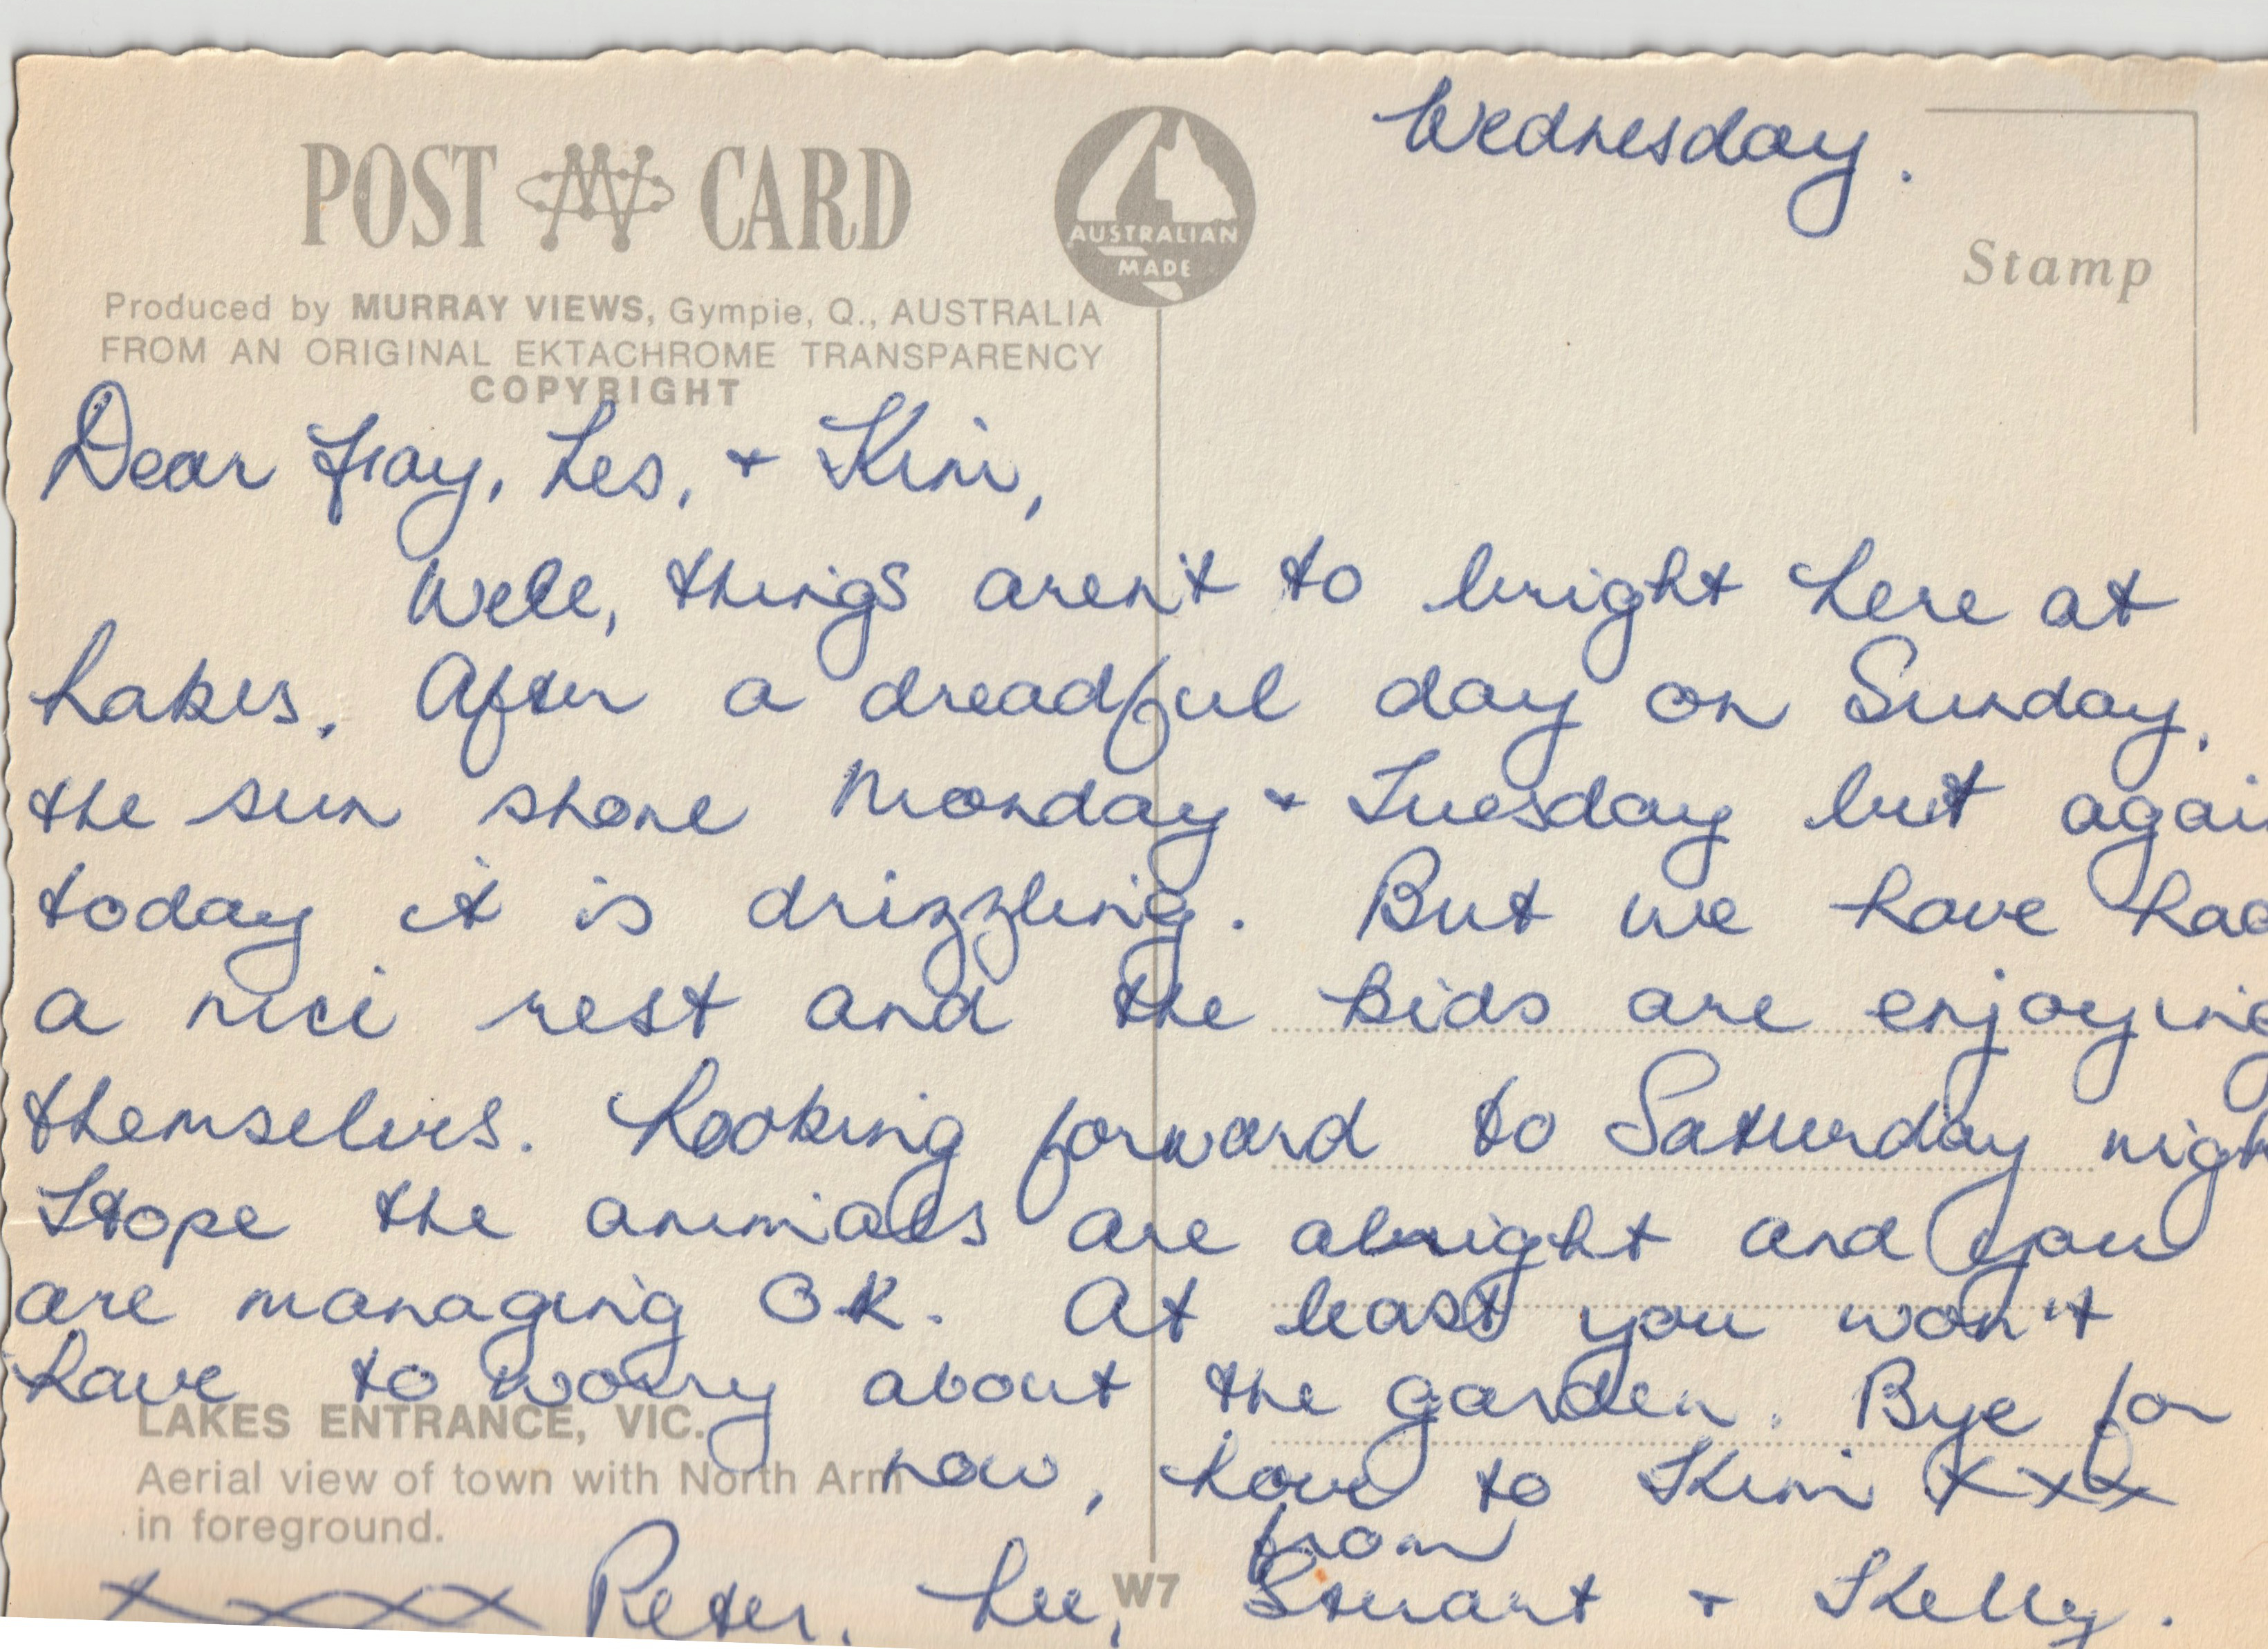 Wednesday.
POST CARD
AUSTRALIAN
MADE
Stamp
Produced by MURRAY VIEWS, Gympie, Q., AUSTRALIA
FROM AN ORIGINAL EKTACHROME TRANSPARENCY
COPYRIGHT
Dear Fray, Les, + Kim,
Well, things aren't to bright here at
Lakes. After a dreadful day on Sunday,
the sun shone Monday + Tuesday but agai
today it is drizzling. But we have had
a nice rest and the kids are enjoying
themselves. Looking forward to Saturday nigh
Hope the animals are alright and you
are managing OK. At least you won't
have to worry about the garden. Bye for
now, Love to Kim xxx
from
xxxx Peter, Lee, Stuart + Kelly.
LAKES ENTRANCE, VIC.
Aerial view of town with North Arm
in foreground.
W7